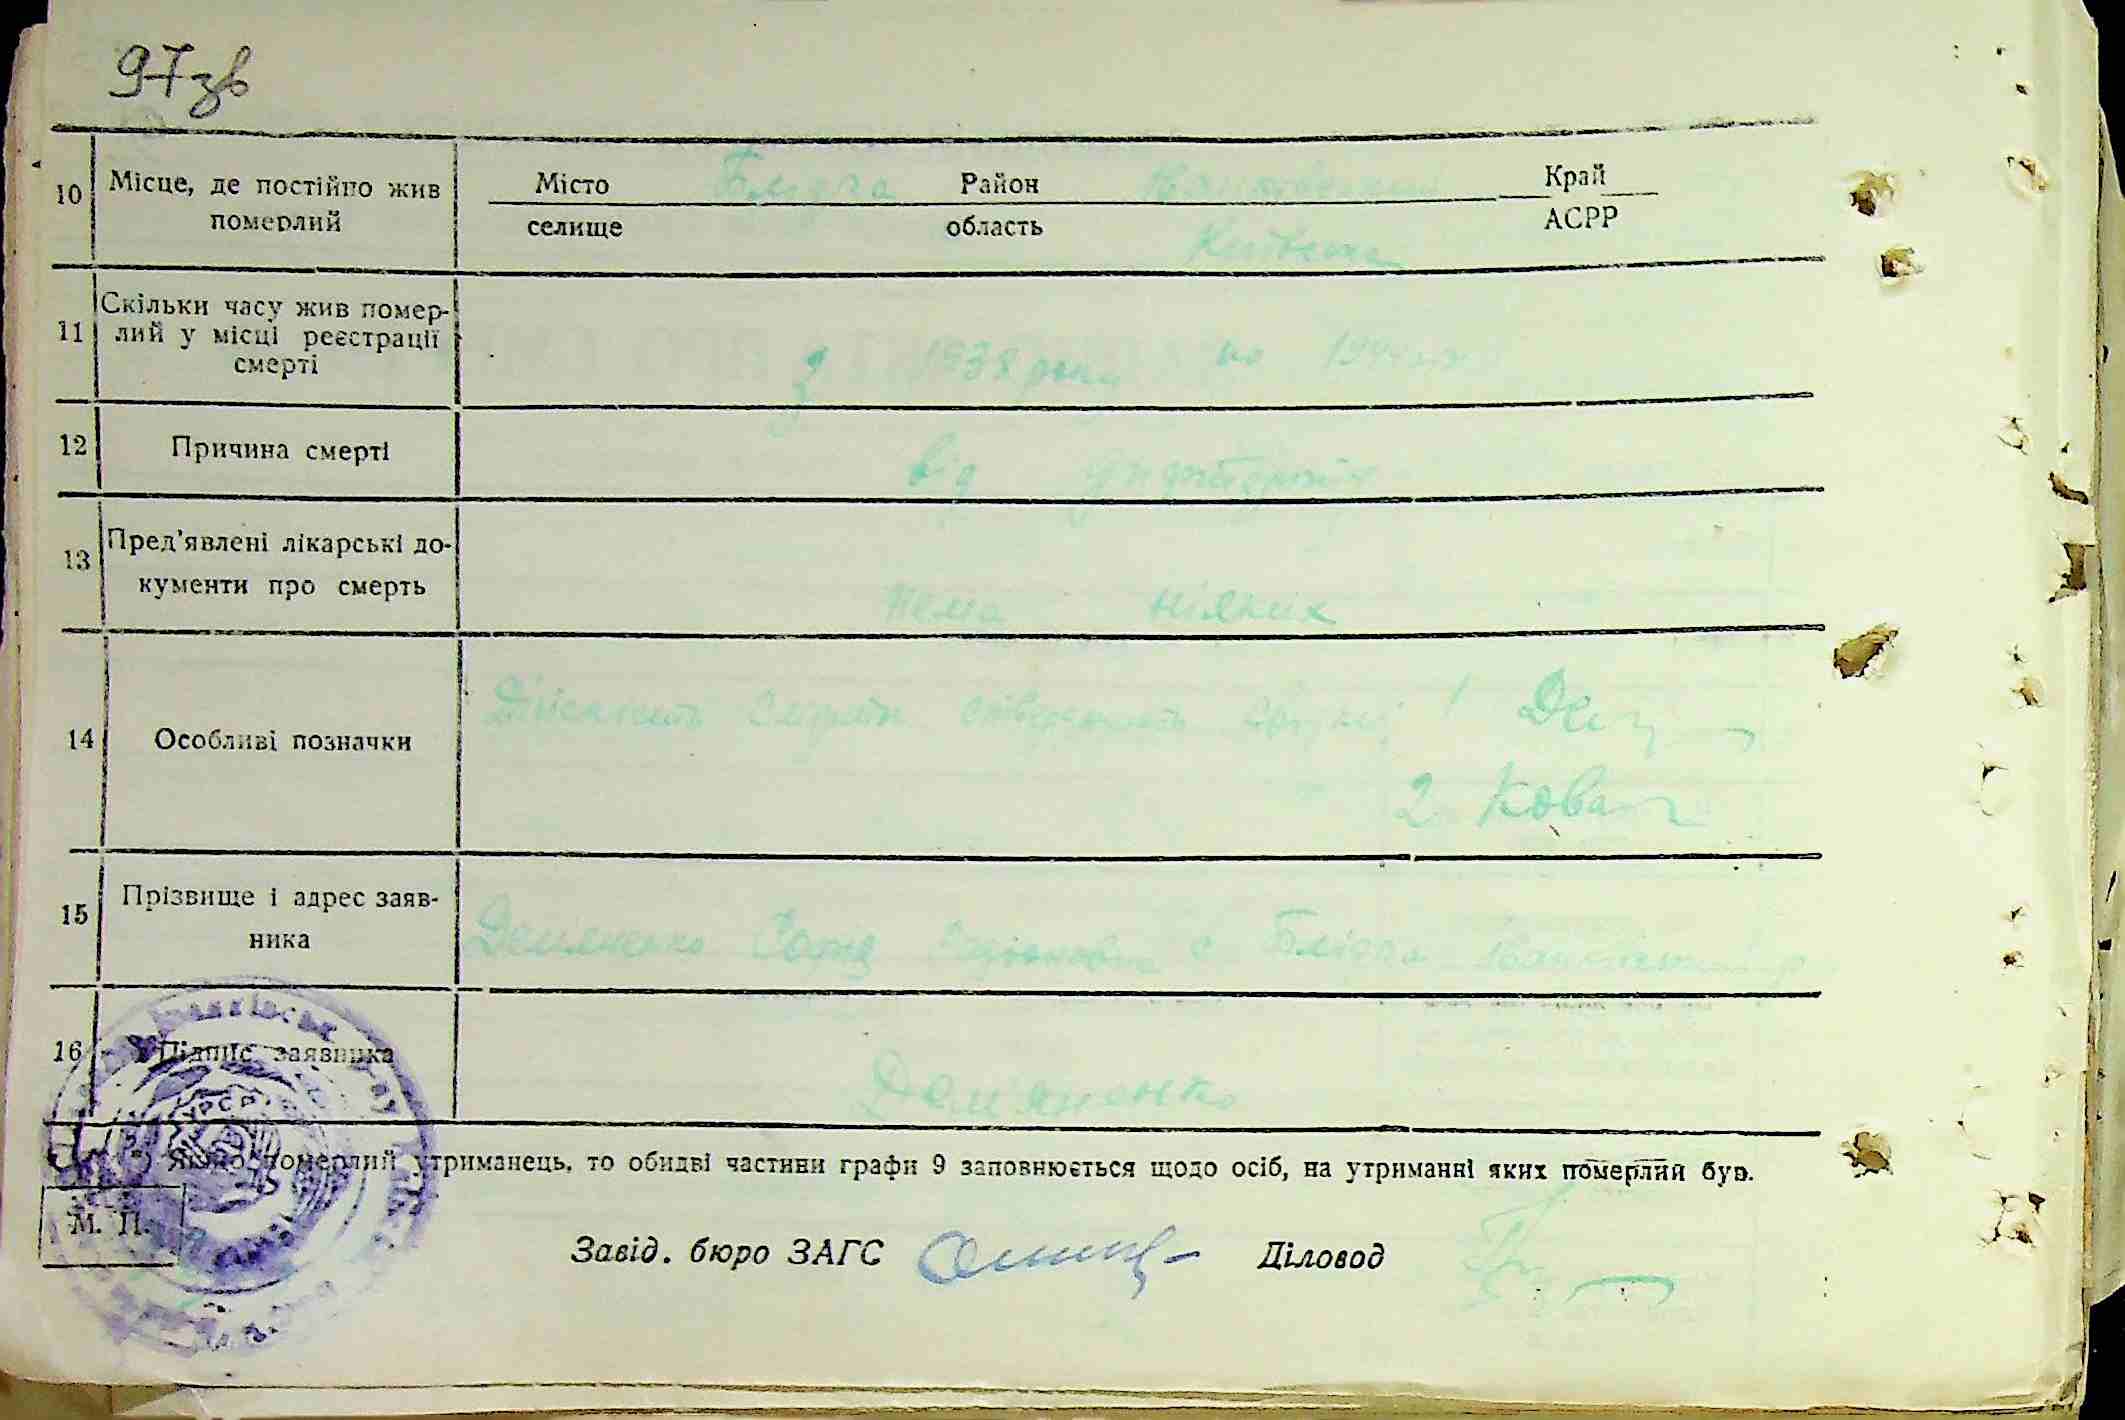 97зв
10 Місце, де постійно жив померлий
Місто Блідча Район Іванківський Край
селище область Київська АСРР
11 Скільки часу жив помер-
лий у місці реєстрації
смерті
з 1938 року по
12 Причина смерті
від
13 Пред'явлені лікарські до-
кументи про смерть
нема ніяких
14 Особливі позначки
Дійсність смерти стверджують свідки 1
2 Ковал
15 Прізвище і адрес заяв-
ника
Демяненко с Блідча Іванківський р
16 Підпис заявника
Дем'яненко
Якщо померлий утриманець, то обидві частини графи 9 заповнюється щодо осіб, на утриманні яких померлий був.
М. П.
УРСР
Завід. бюро ЗАГС Діловод